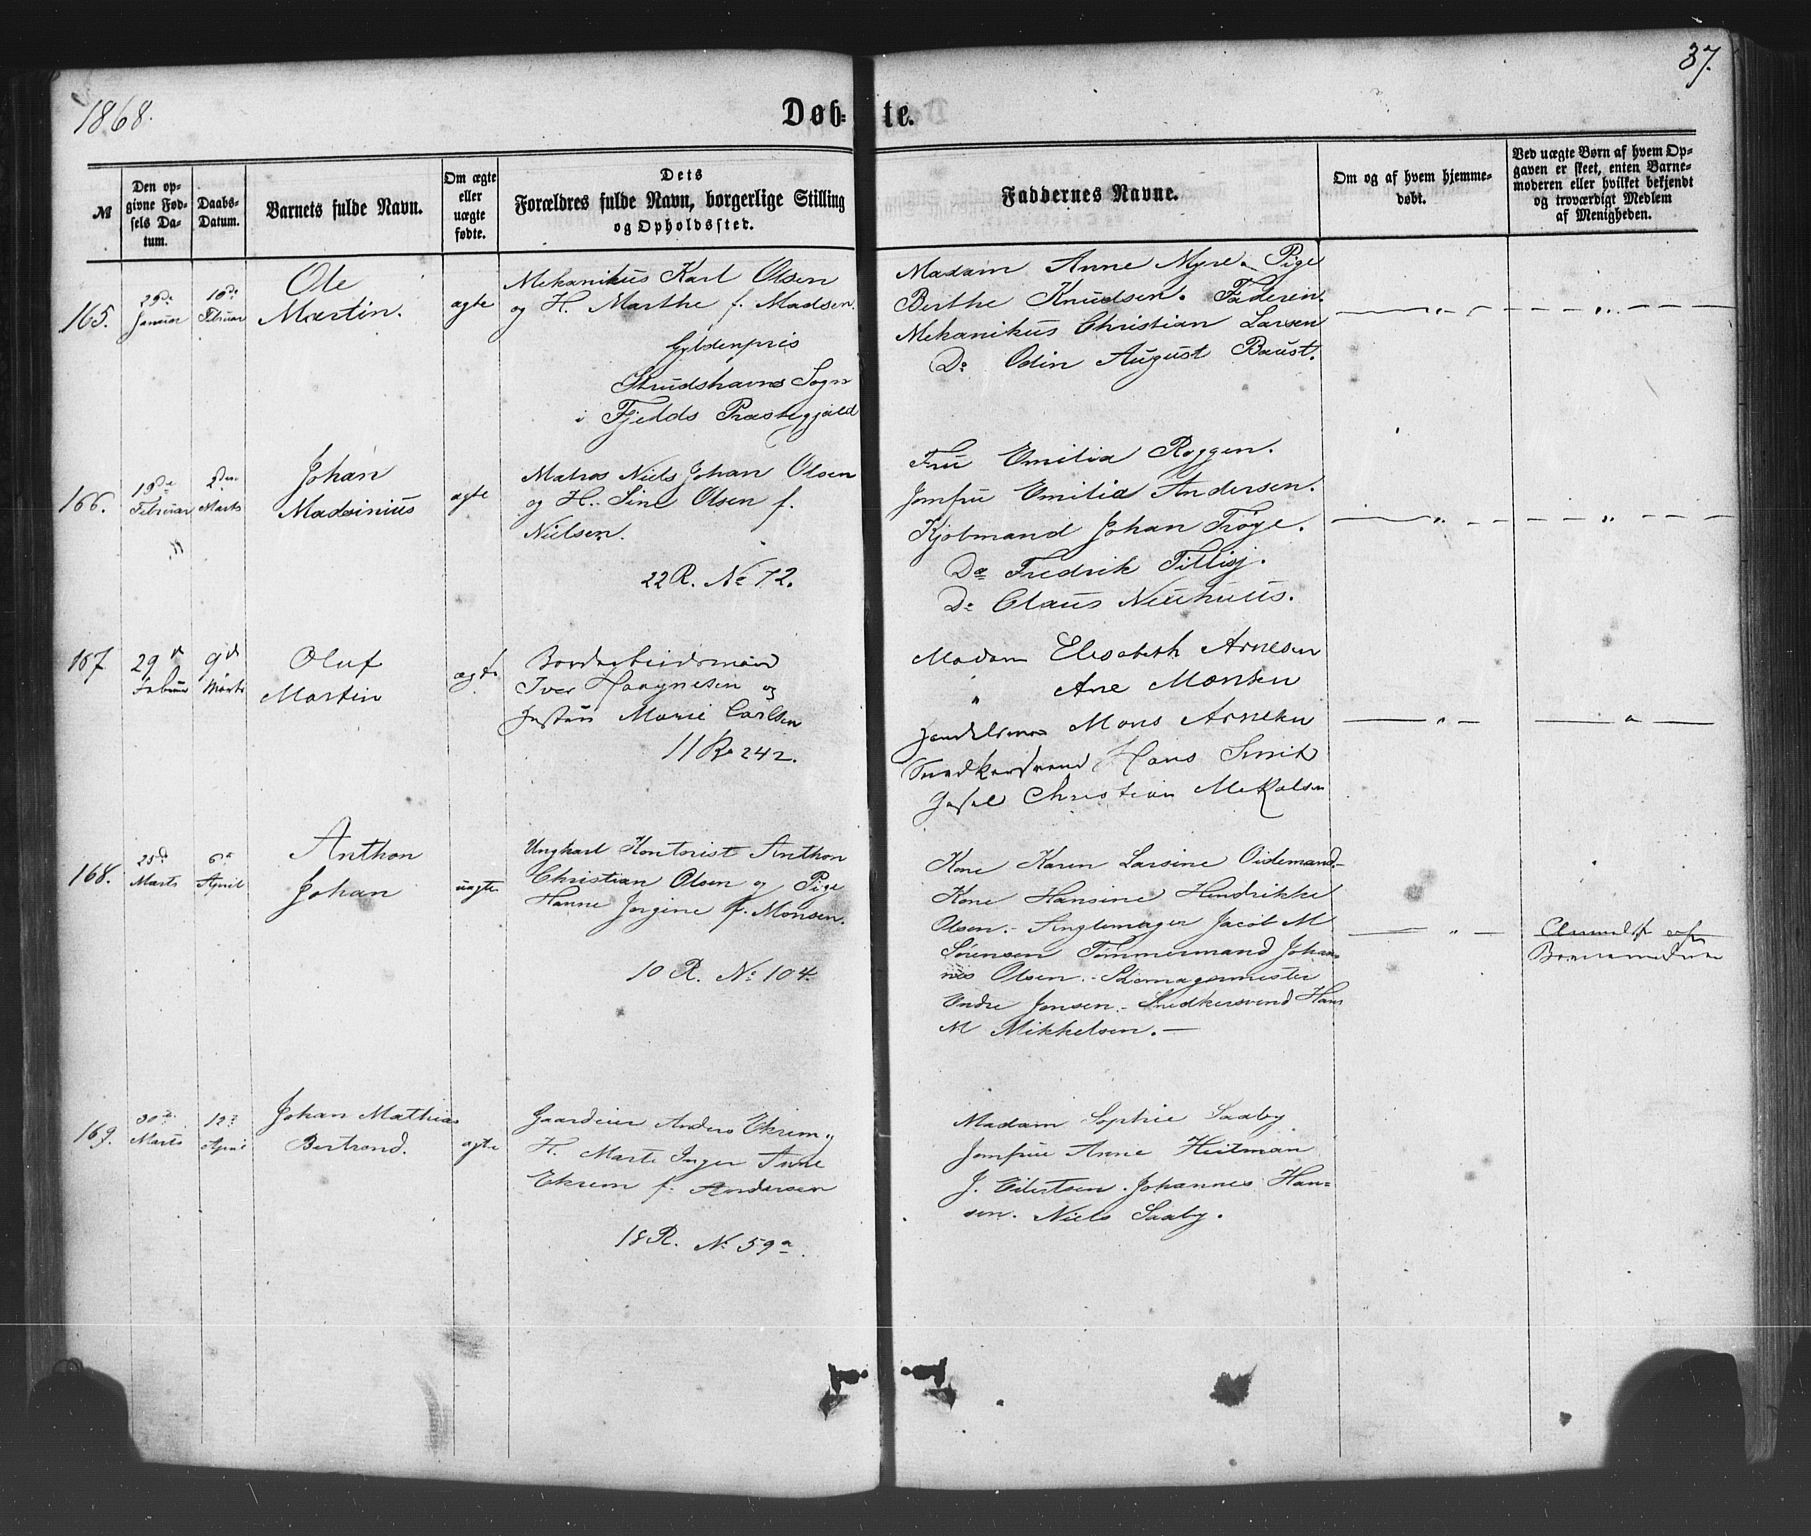 1868.
Døb-te.
37.
№
Den opgivne Fødsels Datum.
Daabs-Datum.
Barnets fulde Navn.
Om ægte eller uægte fødte.
Dets Forældres fulde Navn, borgerlige Stilling og Opholdssted.
Faddernes Navne.
Om og af hvem hjemmedøbt.
Ved uægte Børn af hvem Opgaven er skeet, enten Barnemoderen eller hvilket bekjendt og troværdigt Medlem af Menigheden.
165.
29de Januar
16de Februar
Ole
Martin.
ægte
Mekanikus Karl Olsen
og H. Marthe f. Madsen.
Gyldenpris
Strudshavns Sogn
i Fjelds Præstegjæld
Madam Anne Myre. Pige
Berthe Knudsen. Faderen.
Mekanikus Christian Larsen
Do Odin August Baust.
166.
19de Februar
2den Marts
Johan
Madsinius
ægte
Matros Niels Johan Olsen
og H. Sine Olsen f.
Nielsen.
22 R. No 72.
Fru Emilia Roggen.
Jomfru Emilia Andersen.
Kjøbmand Johan Trøye.
Do Fredrik Tillisj.
Do Claus Neuhuus.
167
29d Februar
9d Marts
Oluf
Martin
ægte
Bordarbeidsmand
Iver Haagnesen og
Marie Carlsen
11 R. 242.
Madam Elisabeth Arnesen
" Ane Monsen
Handelsmand Mons Arnesen
Snedkersvend Hans Smit
Christian Mikalsen
168.
25d Marts
6te April
Anthon
Johan
uægte
Ungkarl Kontorist Anthon
Christian Olsen og Pige
Hanne Jørgine f. Monsen.
10 R. No 104.
Kone Karen Larsine Oidemand.
Kone Hansine Hendrikke
Olsen. Jacob M
Sørensen Tømmermand Johan-
nes Olsen. Skomagermester
Endre Jonsen. Snedkersvend Hans
M Mikkelsen.
Anmeldt af
Barnemoderen
169.
30te Marts
13d April
Johan Mathias
Bertrand.
ægte
Gaardeier Anders Ekrem og
H. Marte Inger Anne
Ekrem f. Andersen
18 R. No 59a.
Madam Sophie Saaby
Jomfru Anne Heitman
J. Eilertsen. Johannes Han-
sen. Niels Saaby.